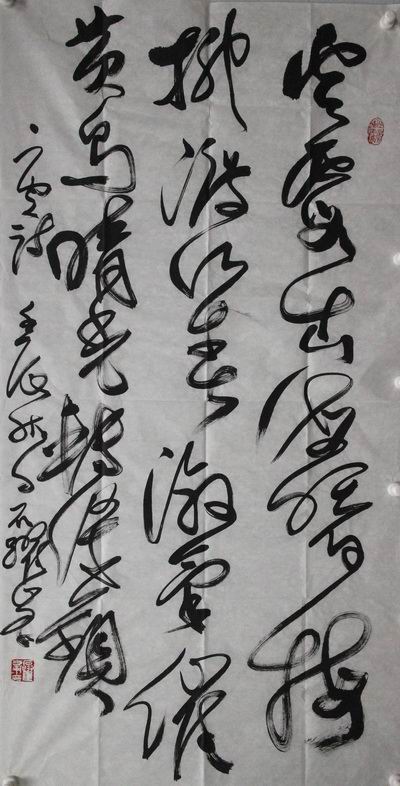 雲霞出海曙梅
柳渡江春淑氣催
黄鳥晴光轉緑蘋
詩 壬辰秋月 石